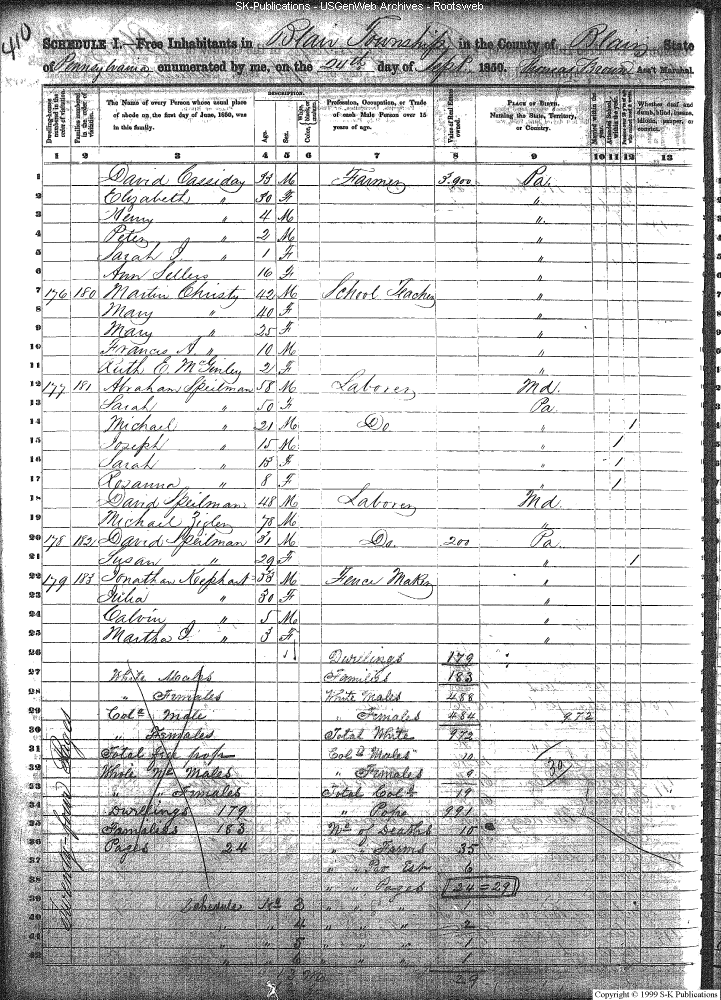 SK-Publications - USGenWeb Archives - Rootsweb
410
SCHEDULE I.—Free Inhabitants in Blair Township in the County of Blair State
of Pennsylvania enumerated by me, on the 24th day of Sept. 1850. Thomas Brown Ass't Marshal.
Dwelling-houses numbered in the order of visitation.
Families numbered in the order of visitation.
The Name of every Person whose usual place of abode on the first day of June, 1850, was in this family.
DESCRIPTION.
Age.
Sex.
Profession, Occupation, or Trade of each Male Person over 15 years of age.
Value of Real Estate owned.
PLACE OF BIRTH. Naming the State, Territory, or Country.
Whether deaf and dumb, blind, insane, idiotic, pauper, or convict.
1 2 3 4 5 6 7 8 9 10 11 12 13
1 David Cassiday M Farmer 3,900 Pa.
2 Elizabeth " 30 F "
3 Henry " 4 M "
4 Peter " 2 M "
5 Sarah J. " 1 F "
6 Ann Sellers 16 F "
7 176 180 Martin Christy 42 M School Teacher "
8 Mary " 40 F "
9 Mary " 25 F "
10 Francis A. " 10 M "
11 Ruth E. McGinley 2 F "
12 177 181 Abraham Speilman 58 M Laborer Md.
13 Sarah " 50 F Pa
14 Michael " 21 M Do " 1
15 Joseph " 15 M " 1
16 Sarah " 13 F " 1
17 Rosanna " 8 F " 1
18 David Speilman 48 M Laborer Md.
19 Michael 78 M "
20 178 182 David Speilman 31 M Do. 200 Pa.
21 Susan " 29 F " 1
22 179 183 Jonathan Kephart 33 M Fence Maker "
23 Julia " 30 F "
24 Calvin " 5 M "
25 Martha J. " 3 F "
26 Dwellings 179
27 White Males Families 183
28 " Females White Males 488
29 Cold Male " Females 484 972
30 " Females Total White 972
31 Total free pop Cold Males 10
32 Whole No Males " Females 9 39
33 " " Females Total Cold 19
34 Dwellings 179 " Popn 991
35 Families 183 No of Deaths 10
36 Pages 24 " Farms 35
37 " Pro Est 6
38 " Pages 24 = 29
39 Schedule No 3 " " 1
40 " " 4 " " 2
41 " " 5 " " 1
42 " " 6 " " 1
29
Twenty-four Pages
Copyright © 1999 S-K Publications